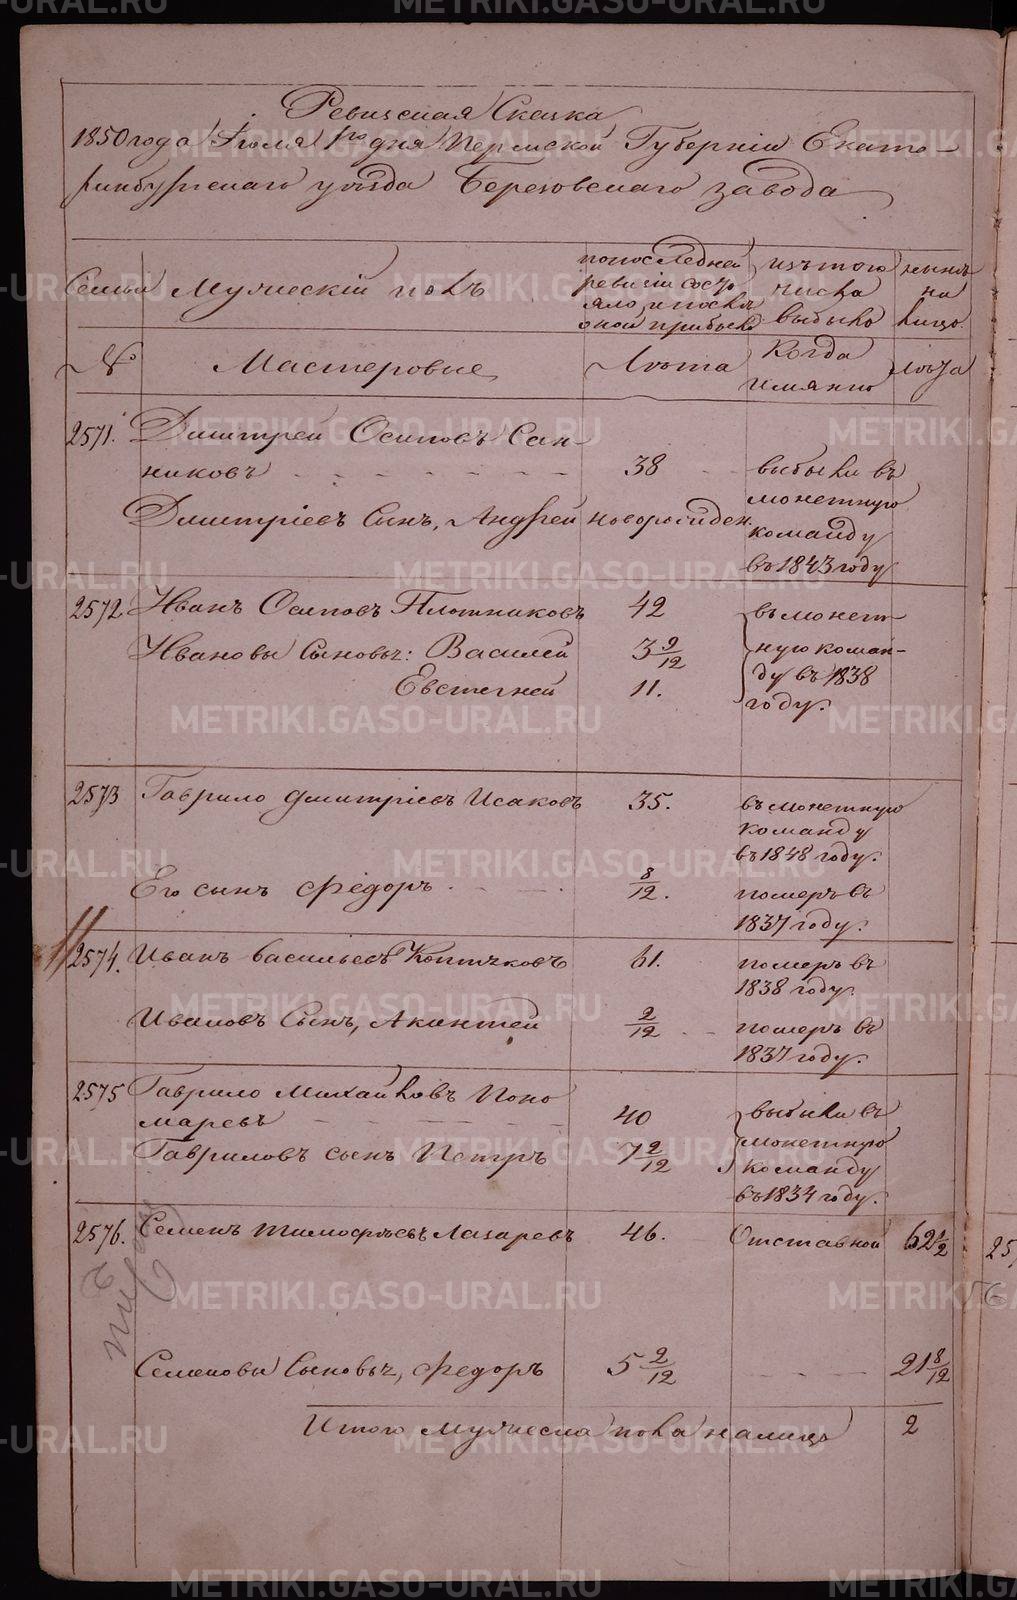 Ревизская Сказка
1850 года Iюля 1го дня Пермской Губернiи Екате-
ринбургскаго уѣзда Березовскаго завода
Семьи Мужескiй полъ
по последней ревизiи состояло и после оной прибыло
изъ того числа выбыло
нынѣ на лицо
№ Мастеровые Лѣта Когда имянно лѣта
2571. Дмитрей Осиповъ Сан-
никовъ 38 выбыли въ
монетную
Дмитрiевъ Сынъ, Андрей новорожден.
команду
въ 1843 году
2572. Иванъ Осиповъ Плотниковъ 42 въ монет
Ивановы Сыновья: Василей 3 9/12 ную коман-
Евстегней 11. ду въ 1838
году.
2573 Гаврило Дмитрiевъ Исаковъ 35. въ монетную
команду
въ 1848 году.
Его сынъ Федоръ 8/12. померъ въ
1837 году.
2574. Иванъ Васильевъ 61. померъ въ
1838 году.
Ивановъ Сынъ, 2/12 померъ въ
1837 году.
2575 Гаврило Михайловъ Поно
маревъ 40 выбыли въ
монетную
Гавриловъ сынъ Петръ 7 2/12
команду
въ 1834 году.
2576. Семенъ Тимофѣевъ Лазаревъ 46. Отставной 62 1/2
Семеновы Сыновья, Федоръ 5 2/12 21 8/12
Итого мужеска пола на лицо 2
METRIKI.GASO-URAL.RU